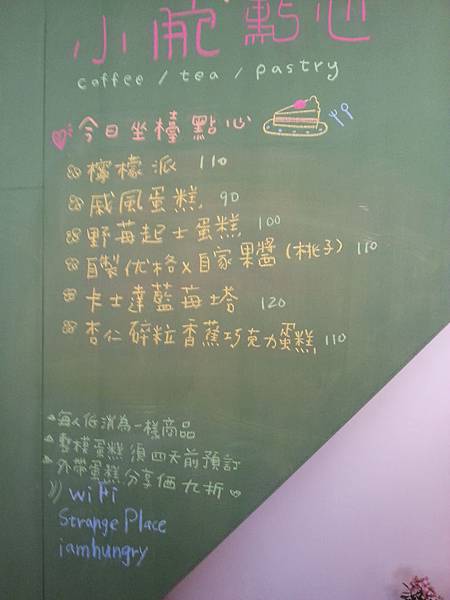 小腕點心
coffee / tea / pastry
今日坐檯點心
檸檬派 110
戚風蛋糕 90
野莓起士蛋糕 100
自製优格x自家果醬(桃子) 110
卡士達藍莓塔 120
杏仁碎粒香蕉巧克力蛋糕 110
每人低消為一樣商品
整模蛋糕須四天前預訂
外帶蛋糕分享価九折
wifi
Strange Place
iamhungry